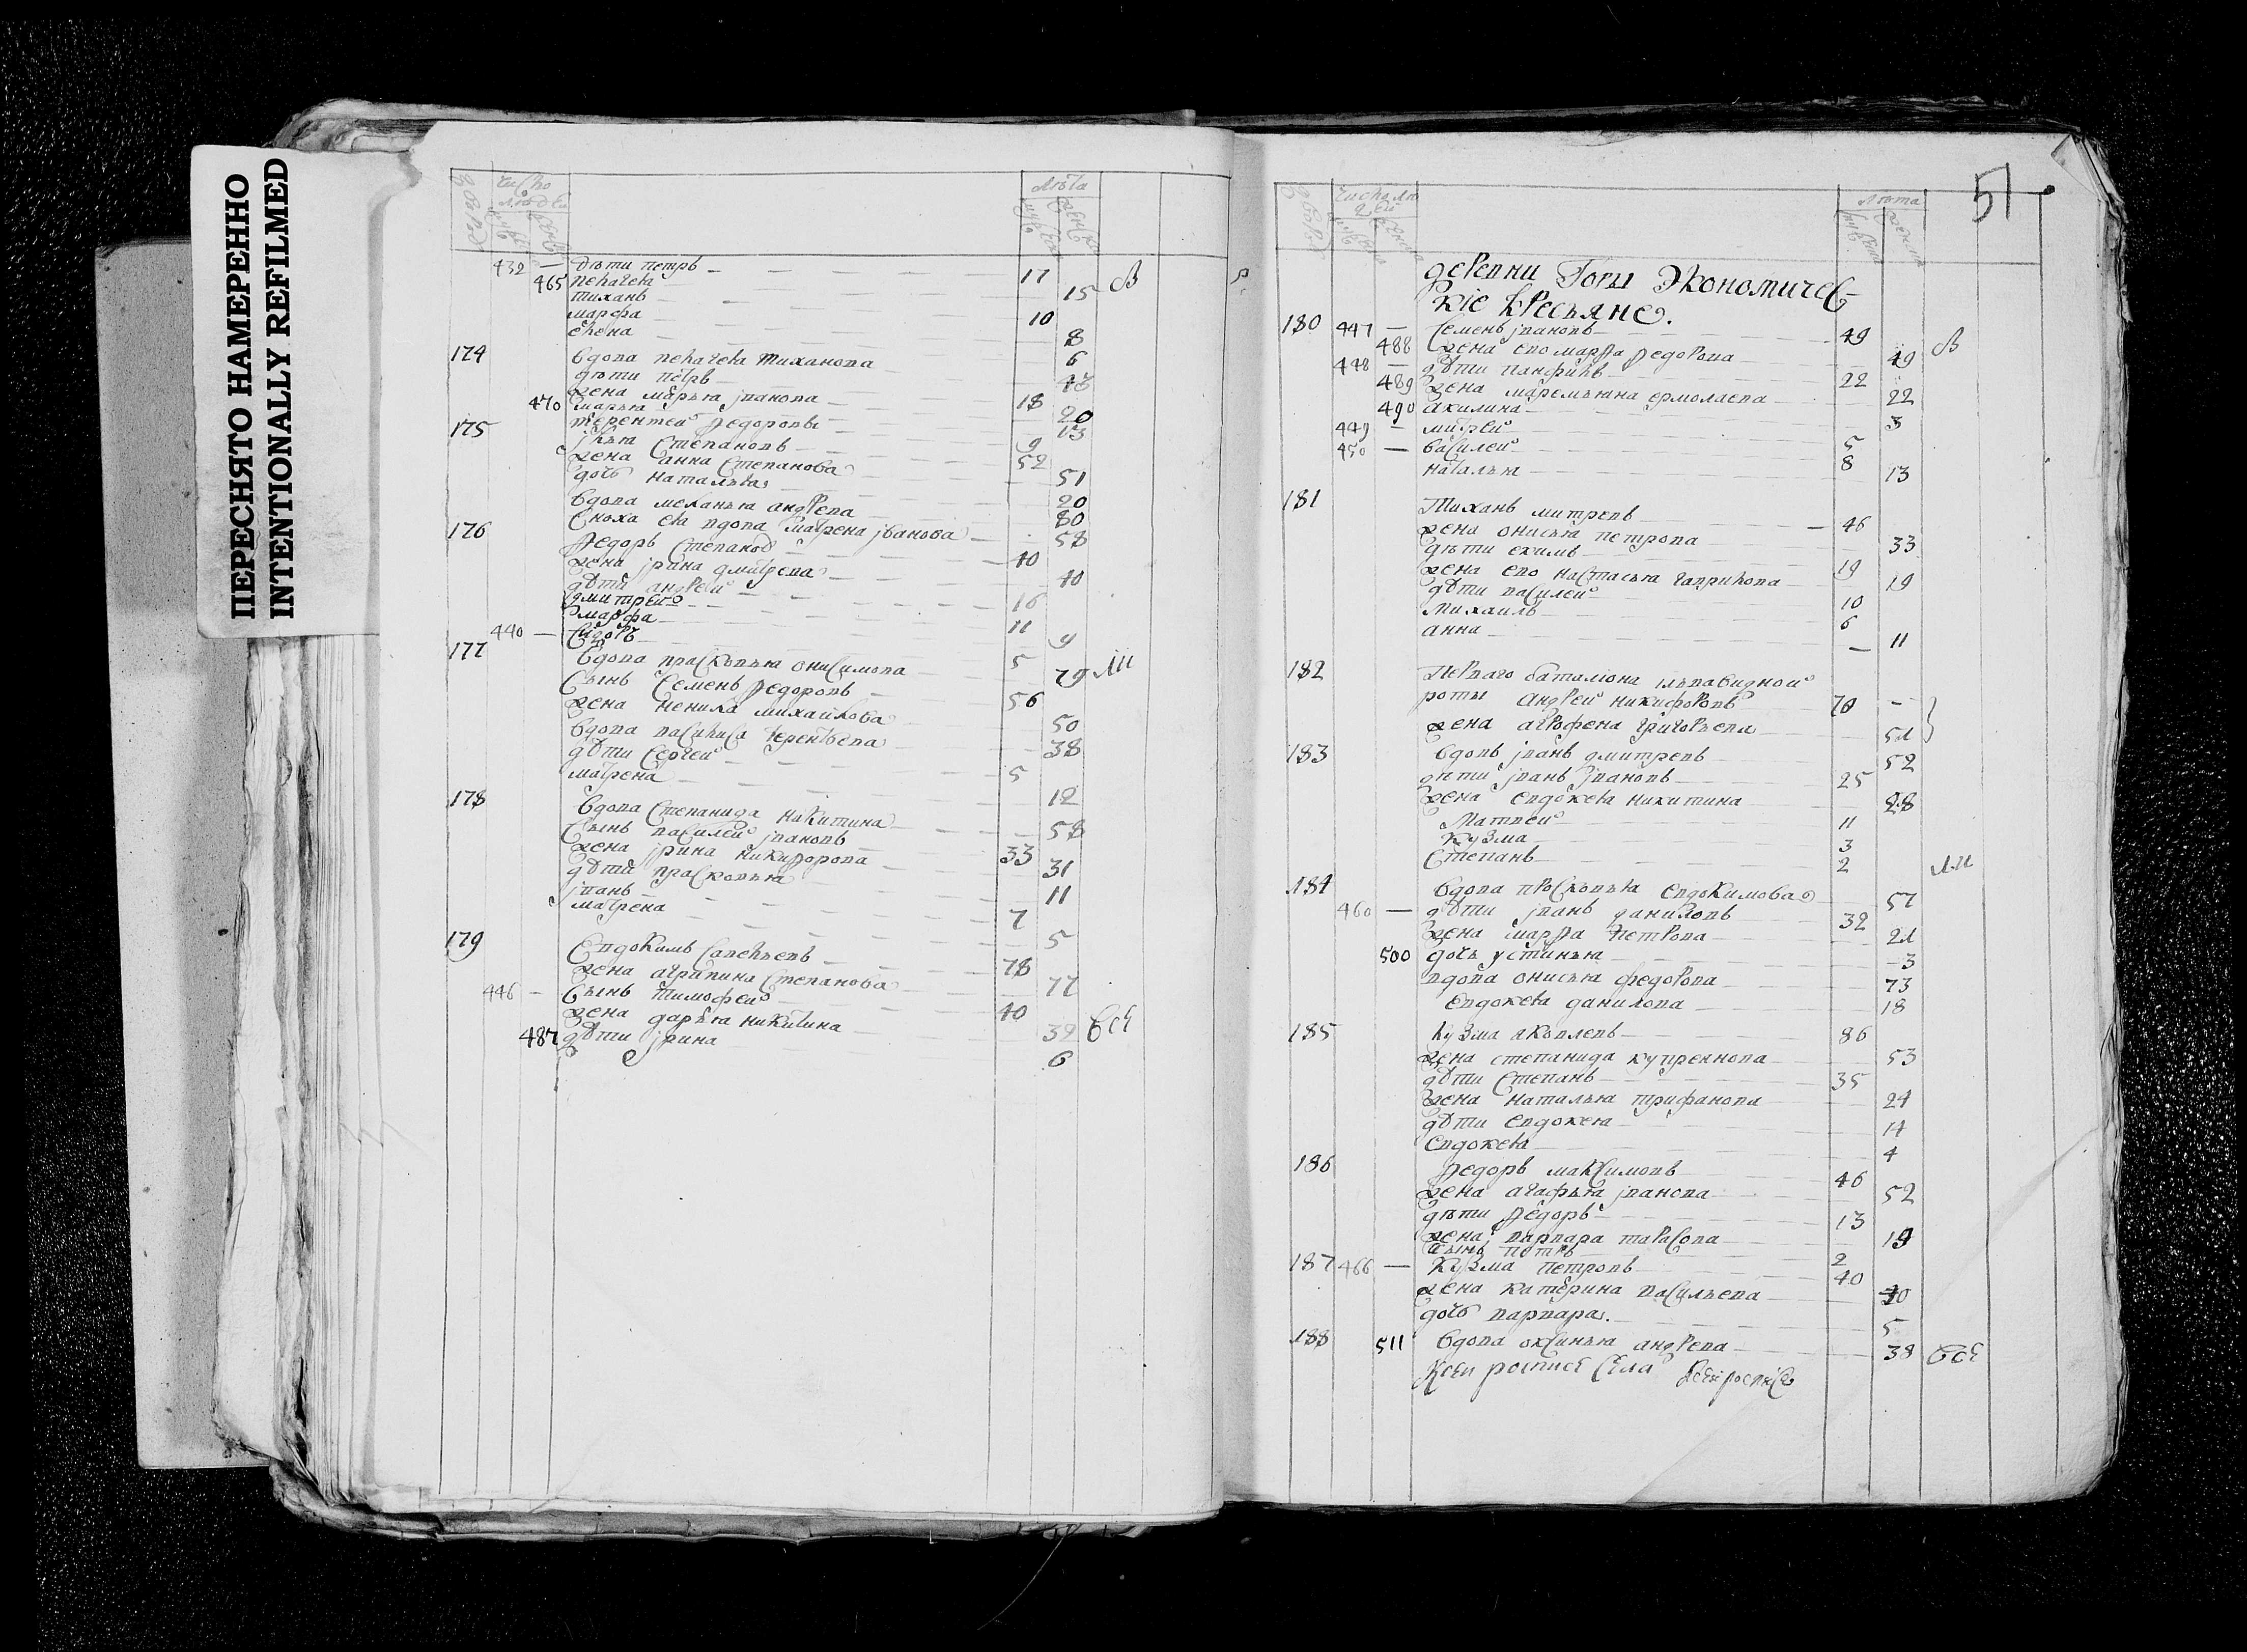 ПЕРЕСНЯТО НАМЕРЕННО
INTENTIONALLY REFILMED
число людей
лѣта
432 — дѣти петръ 17
465 пелагеа 15
тиханъ 10
марфа 8
елена 6
174 вдова пелагеа тиханова
дѣти петръ 18
жена марья іванова 20
470 марья 13
терентей федоровъ 9
175 степановъ 52
жена анна степанова 51
дочь наталья 20
вдова меланья андрева 80
сноха ева вдова матрена іванова 58
176 федоръ степанов 40
жена ірина дмитрева 40
дѣти андрей 16
дмитрей 11
марфа 9
440 — сидоръ 5
177 вдова прасковья онисимова 79
сынъ семенъ федоровъ 56
жена ненила михаилова 50
вдова василиса терентьева 38
дѣти сергей 5
матрена 12
178 вдова степанида никитина 58
сынъ василей івановъ 33
жена ірина никифорова 31
дѣти прасковья 11
іванъ 7
матрена 5
179 евдокимъ савельевъ 78
жена аграпина степанова 77
446 — сынъ тимофей 40
жена дарья никитина 32
487 дѣти ірина 6
51
число людей
лѣта
деревни Горы Экономичес-
кіе крестьяне.
180 447 — семенъ івановъ 49
488 жена ево марфа федорова 49
448 — дѣти панфилъ 22
489 жена маремьяна ермолаева 22
490 акилина 3
449 — 5
450 — василей 8
наталья 13
181 Тиханъ митревъ 46
жена онисья петрова 33
дѣти екимъ 19
жена ево настасья гаврилова 19
дѣти василей 10
михаилъ 6
анна 11
182 Перваго баталіона
роты андрей никифоровъ 70 —
жена агрофена григорьева 51
183 вдовъ іванъ дмитревъ 52
дѣти іванъ івановъ 25
жена евдокея никитина 28
Матвей 11
кузма 3
степанъ 2
184 вдова просковья евдокимова 57
460 — дѣти іванъ даниловъ 32
жена марфа петрова 21
500 дочь устинья 3
вдова онисья федорова 73
евдокея данилова 18
185 кузма яковлевъ 86
жена степанида купреянова 53
дѣти степанъ 35
жена наталья трифанова 24
дѣти евдокея 14
евдокея 4
186 федоръ максимовъ 46
жена агафья іванова 52
дѣти федоръ 13
жена варвара тарасова 19
сынъ петръ 2
187 466 — кузма петровъ 40
жена катерина васильева
дочь варвара. 5
188 511 вдова оксинья андрева 38